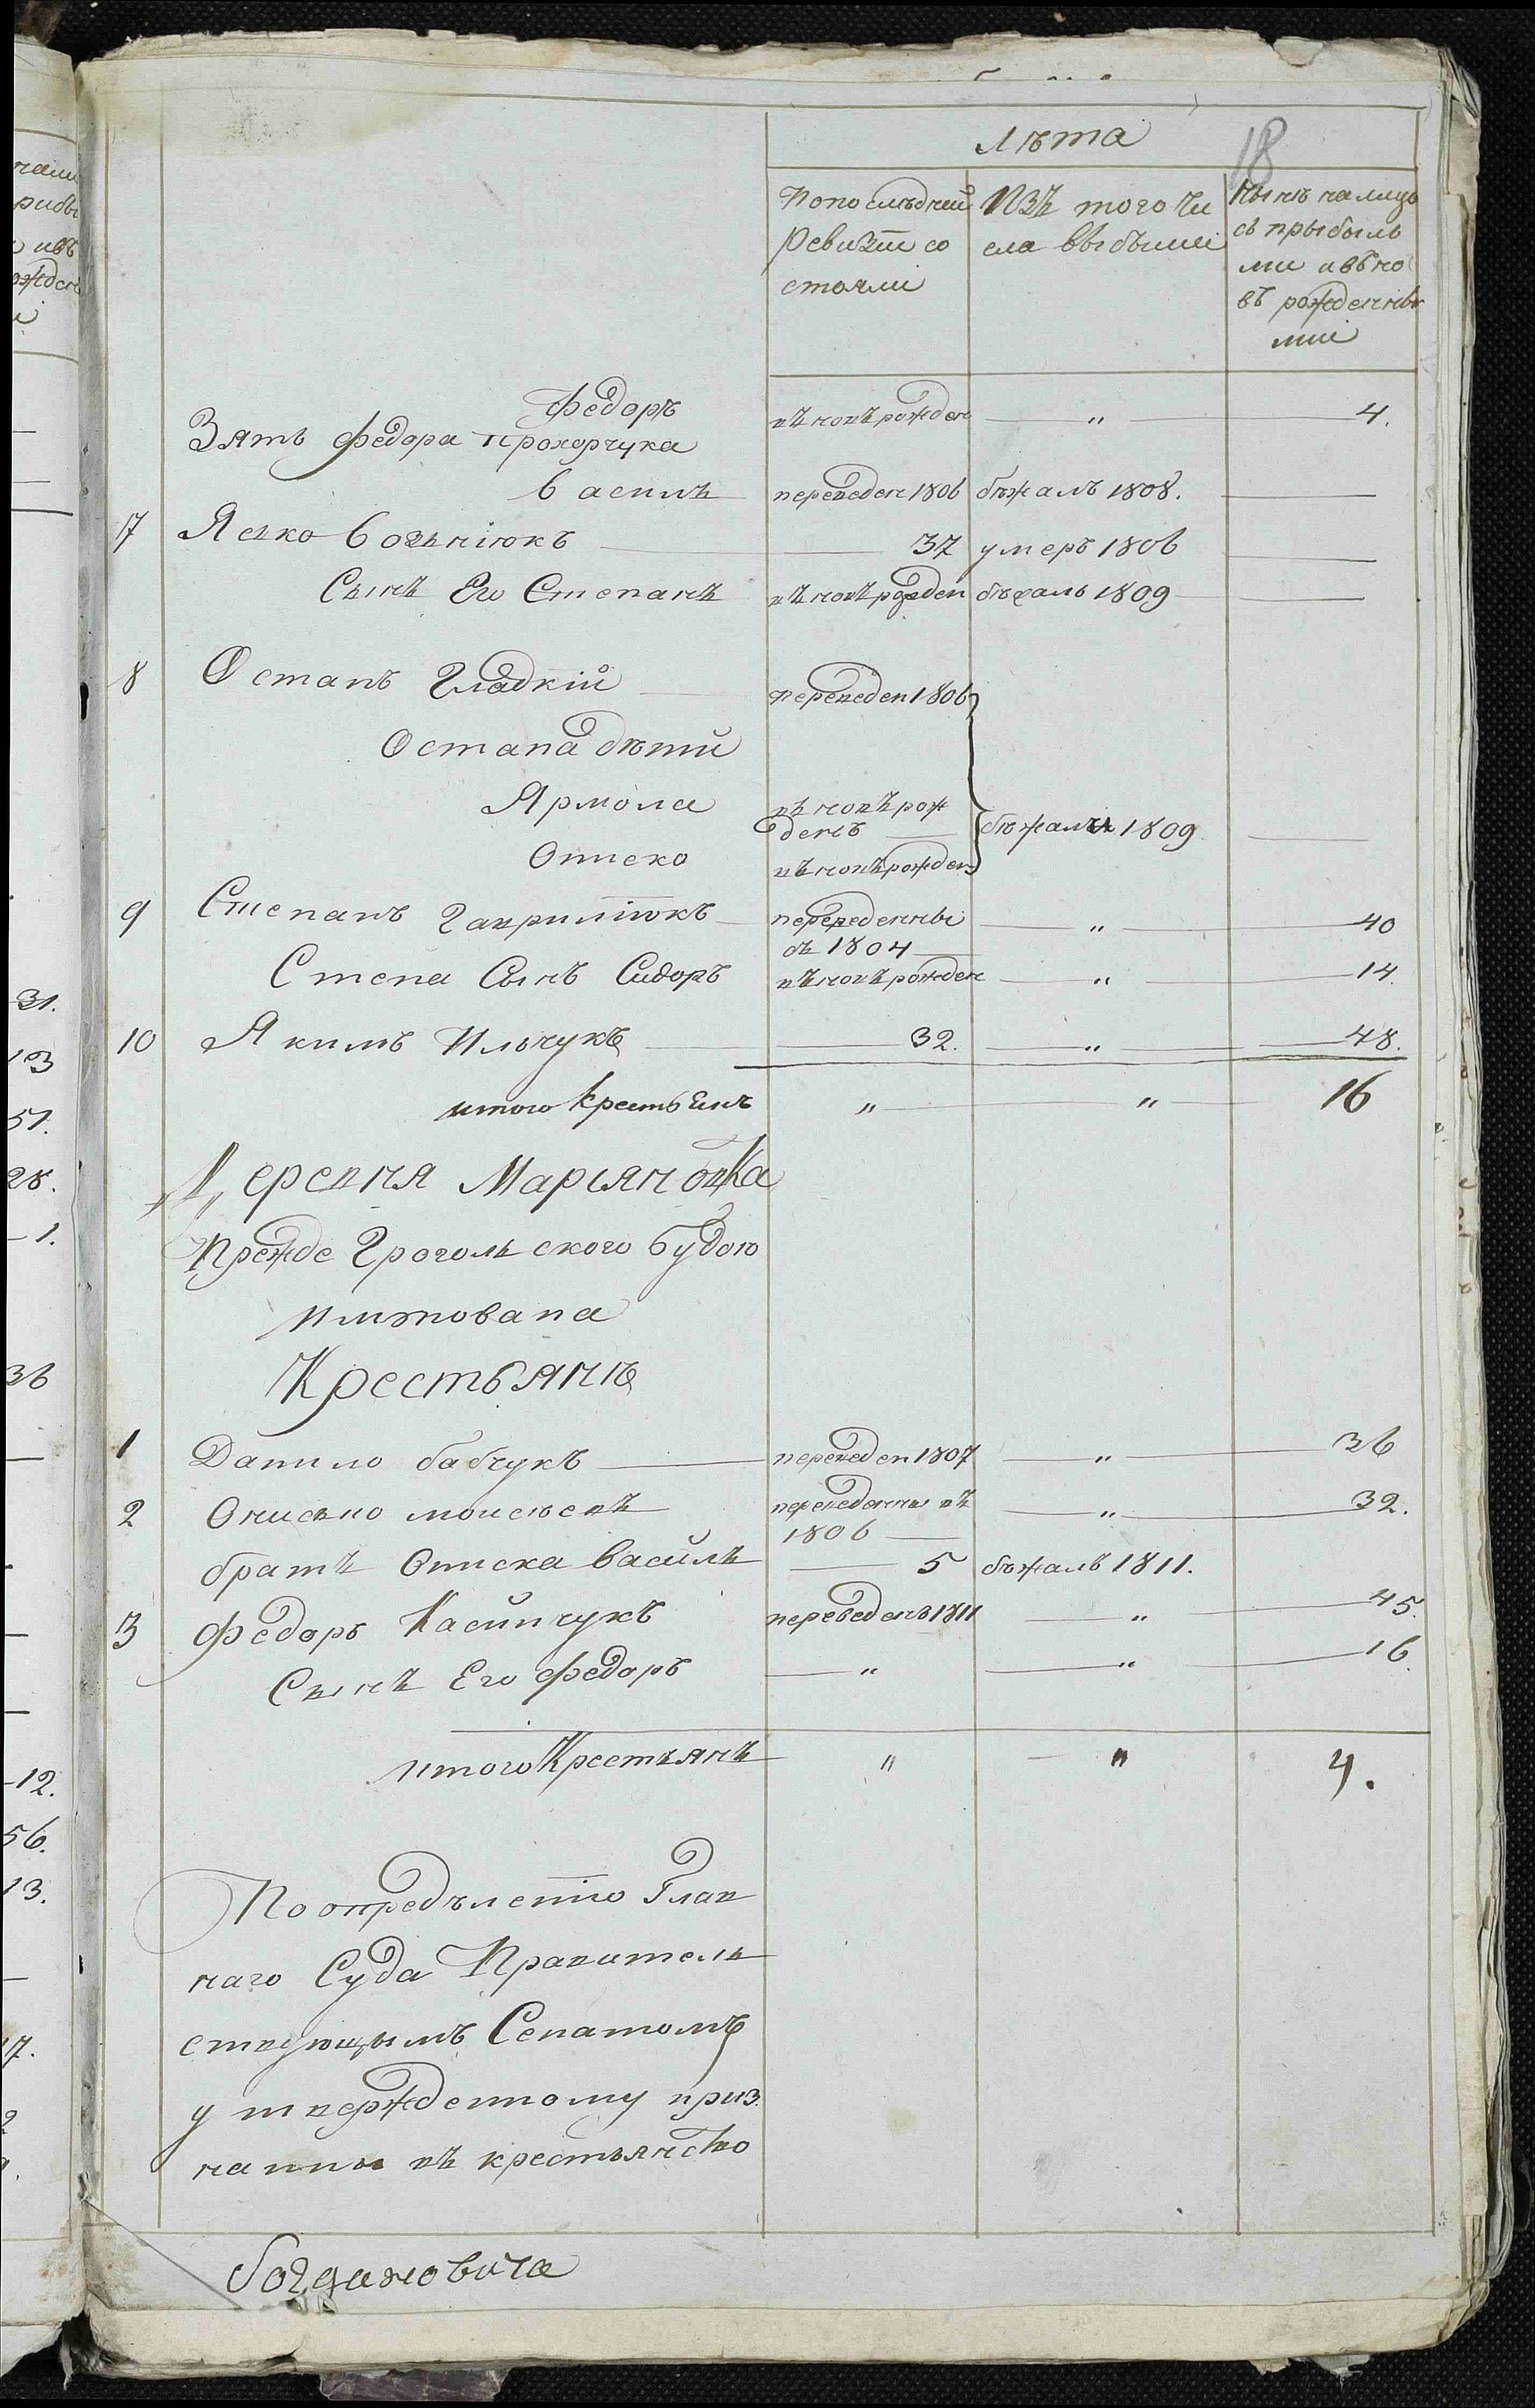 Лѣта
18
Попослѣдней
Ревизіи со
стояли
Изъ того чи
сла выбыли
Нынѣ налицо
съ прыбылы
ми ивъно
въ рожденны
ми
Федоръ въновърожден " 4.
Зять Федора Прохорчука
Василь переведен 1806 бѣжалъ 1808.
17 Яско Вознюкъ 37 умеръ 1806
Сынъ Его Степанъ въновърожден бѣжалъ 1809
8 Остапъ Гладкій переведен 1806
Остапа дѣти
Ярмола въновърож
денъ бѣжалы 1809
Описко въновърожден
9 Степанъ Гаврилюкъ переведенны " 40
въ 1804
Степа Сынъ Сидоръ въновърожден " 14.
10 Якимъ Ильчукъ 32. " 48.
итого Крестьянъ " " 16
Деревня Марьяновка
Прежде Грогольского Будою
имянована
Крестьянъ
1 Данило бабчукъ переведен 1807 " 36
2 Онисько моисеевъ переведенны въ " 32.
1806
братъ Описка василь 5 бѣжалъ 1811.
3 Федоръ Касянчукъ переведенъ 1811 " 45.
Сынъ Его Федоръ " " 16.
итого Крестьянъ " " 4.
По опредѣленію Глав
наго Суда Правитель
ствующымъ Сенатомъ
утвержденному приз
нанны въ крестьянство
Богдановича
31.
13
51.
28.
1.
36
12.
56.
13.
17.